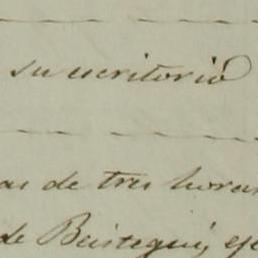 su escritorio
as de tres horas
de Beistegui, eje